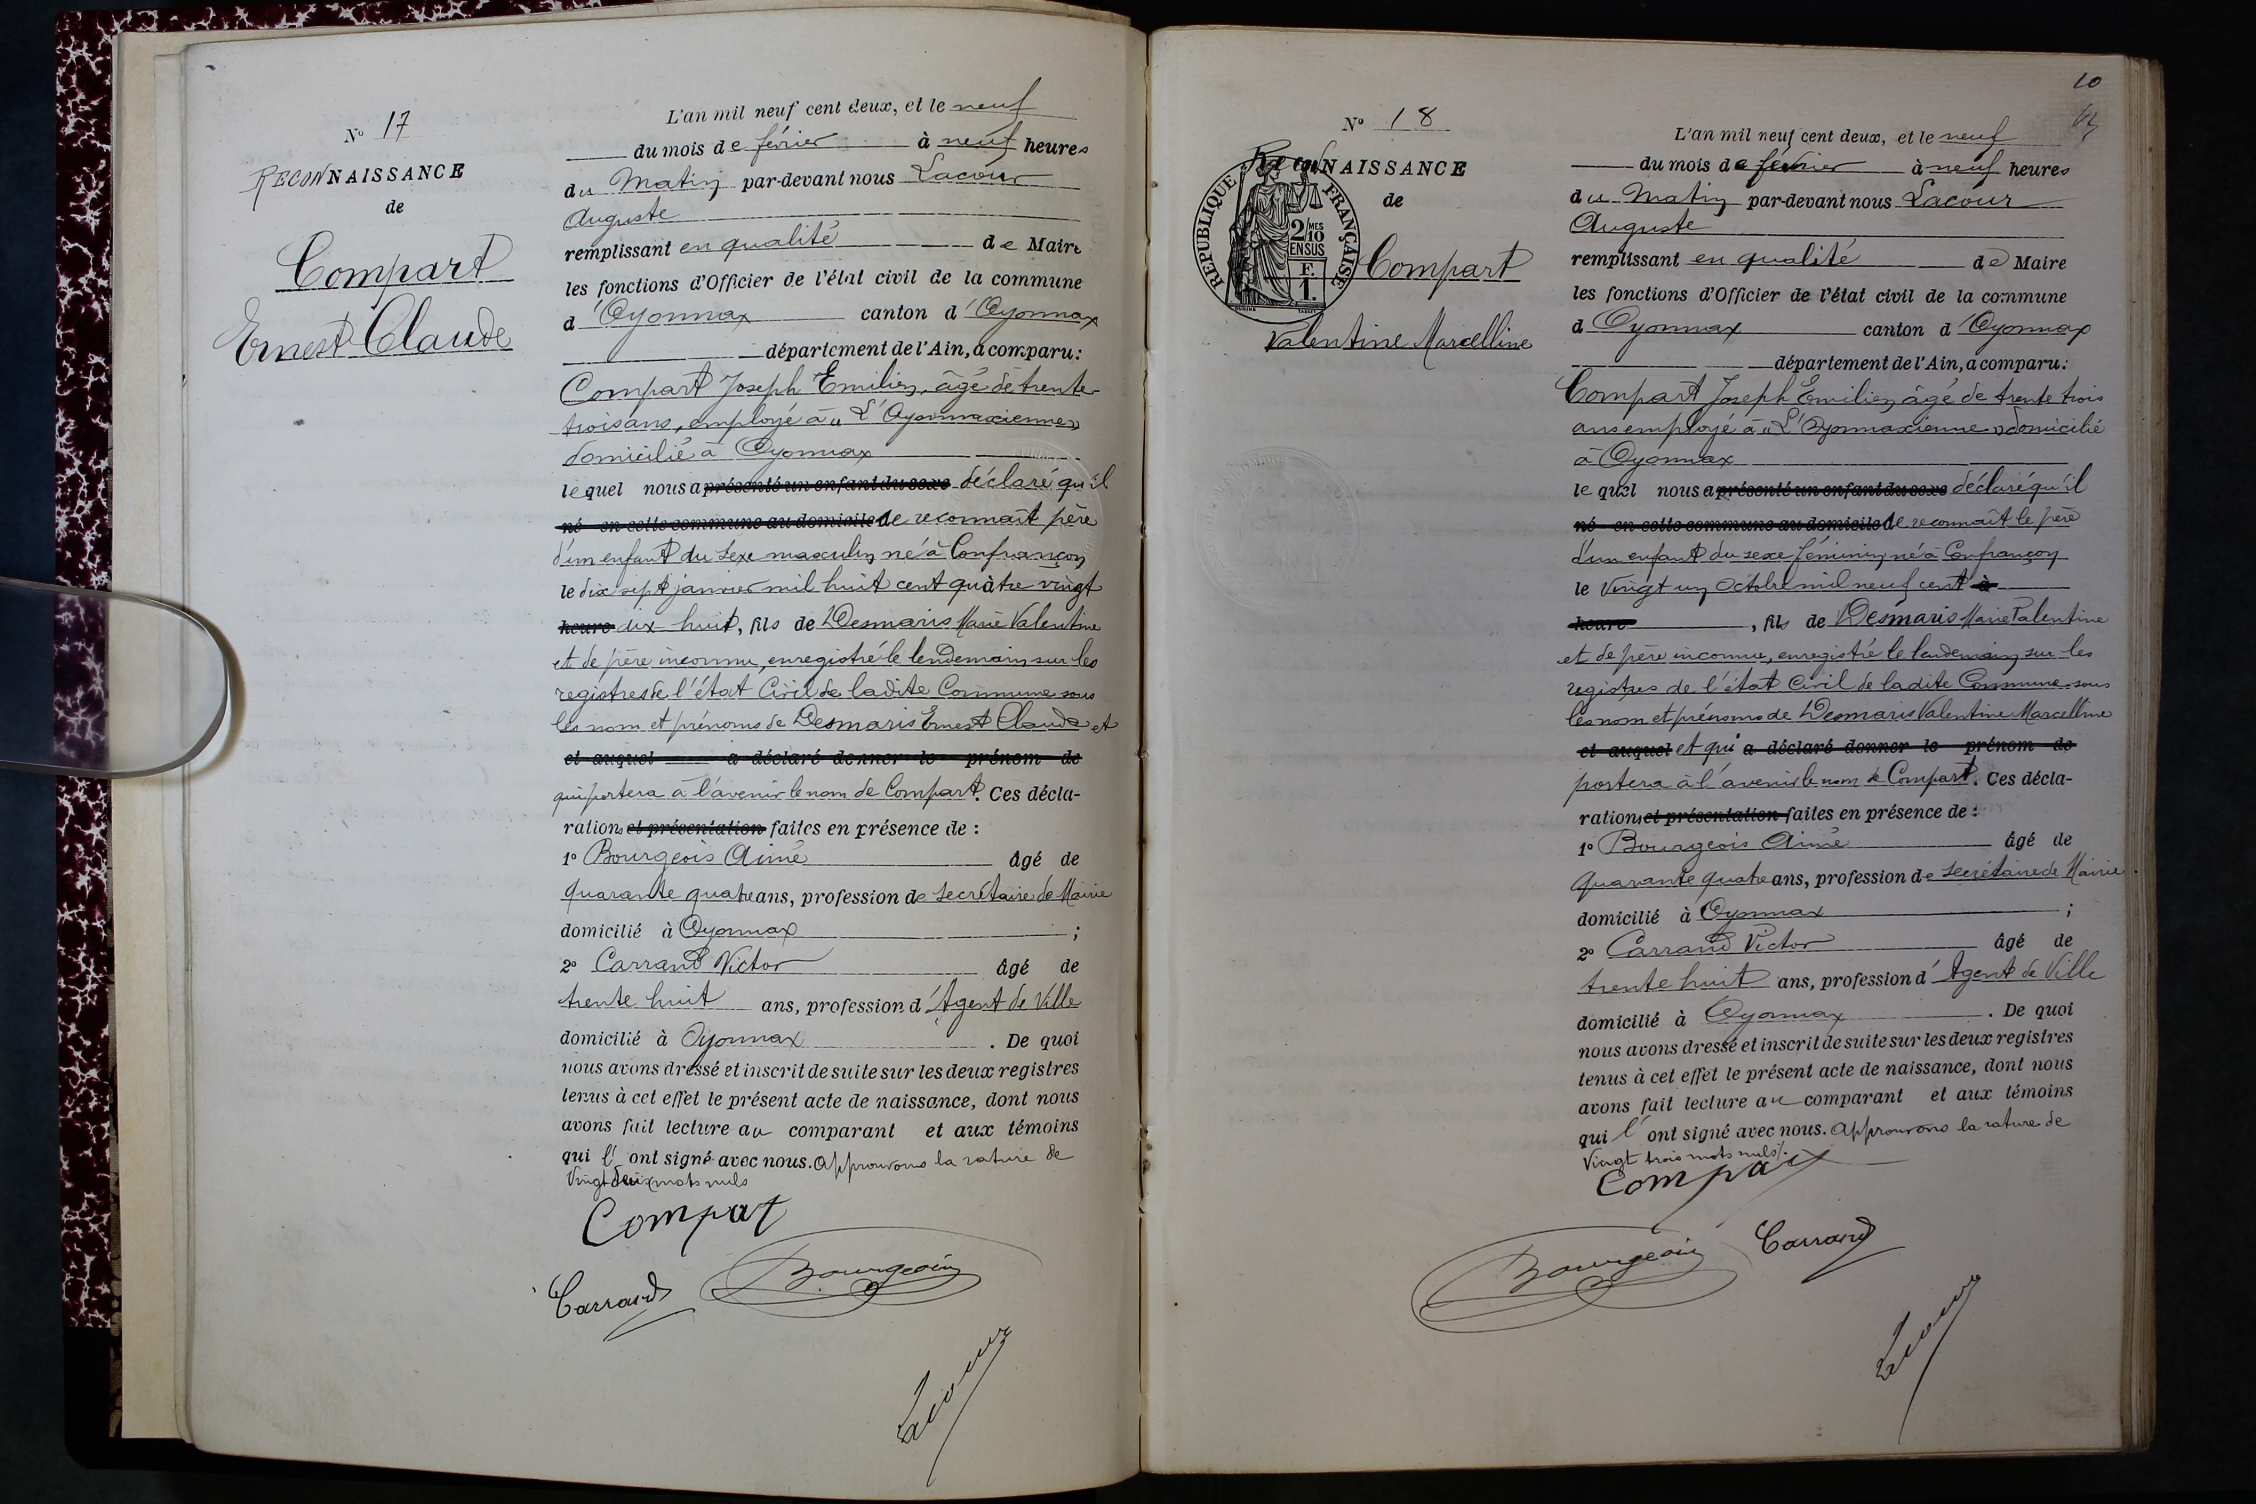 N° 17
RECONNAISSANCE
de
Compart
Ernest Claude
L'an mil neuf cent deux, et le neuf
du mois de février à neuf heures
du Matin par-devant nous Lacour
Auguste
remplissant en qualité de Maire
les fonctions d'Officier de l'état civil de la commune
d'Oyonnax canton d'Oyonnax
département de l'Ain, a comparu:
Compart Joseph Emilien, âgé de trente-
trois ans, employé à "L'Oyonnaxienne"
domicilié à Oyonnax
lequel nous a présenté un enfant du sexe déclaré qu'il
né en cette commune au domicile de se reconnaît père
d'un enfant du sexe masculin né à Confrançon
le dix sept janvier mil huit cent quatre vingt
heure dix-huit, fils de Desmaris Marie Valentine
et de père inconnu, enregistré le lendemain sur les
registres de l'état Civil de ladite Commune sous
les nom et prénoms de Desmaris Ernest Claude et
et auquel a déclaré donner le prénom de
qui portera à l'avenir le nom de Compart. Ces décla-
rations et présentation faites en présence de :
1° Bourgeois Aimé âgé de
quarante quatre ans, profession de secrétaire de Mairie
domicilié à Oyonnax ;
2° Carrand Victor âgé de
trente huit ans, profession d'Agent de Ville
domicilié à Oyonnax . De quoi
nous avons dressé et inscrit de suite sur les deux registres
tenus à cet effet le présent acte de naissance, dont nous
avons fait lecture au comparant et aux témoins
qui l' ont signé avec nous. Approuvons la rature de
Vingt deux mots nuls
Compart
Carrand Bourgeois
Lacour
10
N° 18
RECONNAISSANCE
de
RÉPUBLIQUE FRANÇAISE
2/10 MES
EN SUS
F.
1.
Compart
Valentine Marcelline
L'an mil neuf cent deux, et le neuf
du mois de février à neuf heures
du Matin par-devant nous Lacour
Auguste
remplissant en qualité de Maire
les fonctions d'Officier de l'état civil de la commune
d Oyonnax canton d'Oyonnax
département de l'Ain, a comparu:
Compart Joseph Emilien âgé de trente trois
ans employé à "L'Oyonnaxienne" domicilié
à Oyonnax
lequel nous a présenté un enfant du sexe déclaré qu'il
né en cette commune au domicile de se reconnaît le père
d'un enfant du sexe féminin né à Confrançon
le Vingt un Octobre mil neuf cent à
heure , fils de Desmaris Marie Valentine
et de père inconnu, enregistré le lendemain sur les
registres de l'état Civil de ladite Commune sous
les nom et prénoms de Desmaris Valentine Marcelline
et auquel et qui a déclaré donner le prénom de
portera à l'avenir le nom de Compart. Ces décla-
rations et présentation faites en présence de :
1° Bourgeois Aimé âgé de
quarante quatre ans, profession de secrétaire de Mairie
domicilié à Oyonnax ;
2° Carrand Victor âgé de
trente huit ans, profession d'Agent de Ville
domicilié à Oyonnax . De quoi
nous avons dressé et inscrit de suite sur les deux registres
tenus à cet effet le présent acte de naissance, dont nous
avons fait lecture au comparant et aux témoins
qui l' ont signé avec nous. Approuvons la rature de
Vingt trois mots nuls.
Compart
Bourgeois Carrand
Lacour